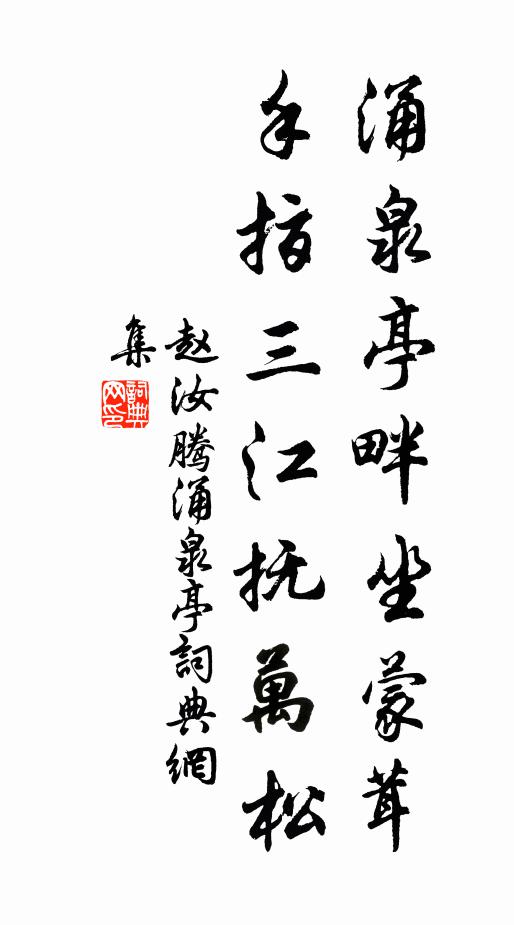 涌泉亭畔坐蒙茸
手指三江抚萬松
赵汝腾涌泉亭詞典網
集
詞典
网印